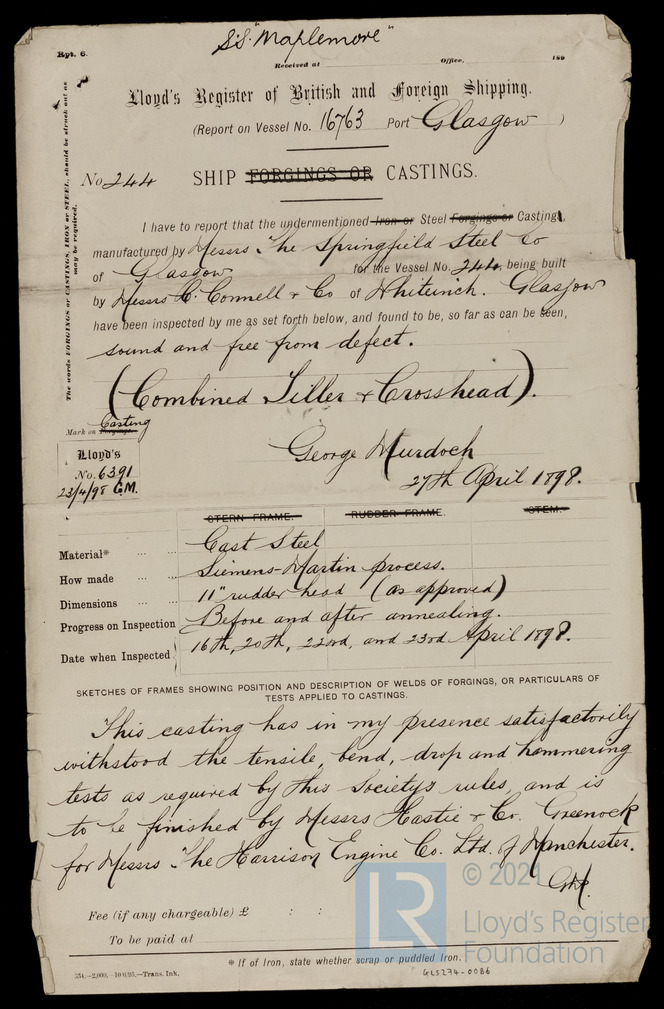 Rpt. 6.
S.S. "Maplemore"
Received at Office, 189
Lloyd's Register of British and Foreign Shipping.
(Report on Vessel No. 16763 Port Glasgow )
No 244 SHIP FORGINGS OR CASTINGS.
The words FORGINGS or CASTINGS, IRON or STEEL, should be struck out as
may be required.
I have to report that the undermentioned Iron or Steel Forgings or Casting
manufactured by Messrs The Springfield Steel Co
of Glasgow for the Vessel No. 244, being built
by Messrs C. Connell & Co of Whiteinch. Glasgow
have been inspected by me as set forth below, and found to be, so far as can be seen,
sound and free from defect.
(Combined Tiller & Crosshead).
Casting
Mark on Forgings
Lloyd's
No. 6391
23/4/98 G.M.
George Murdoch
27th April 1898.
STERN FRAME. RUDDER FRAME. STEM.
Material* ... ... Cast Steel
How made ... Siemens-Martin process.
Dimensions ... ... 11" rudder head (as approved)
Progress on Inspection Before and after annealing.
Date when Inspected 16th, 20th, 22nd, and 23rd April 1898.
SKETCHES OF FRAMES SHOWING POSITION AND DESCRIPTION OF WELDS OF FORGINGS, OR PARTICULARS OF
TESTS APPLIED TO CASTINGS.
This casting has in my presence satisfactorily
withstood the tensile, bend, drop and hammering
tests as required by this Society's rules, and is
to be finished by Messrs Hastie & Co. Greenock
for Messrs The Harrison Engine Co. Ltd. of Manchester.
G.M.
Fee (if any chargeable) £ : :
To be paid at
* If of Iron, state whether scrap or puddled Iron.
GLS274-0086
LR © 2021
Lloyd's Register
Foundation